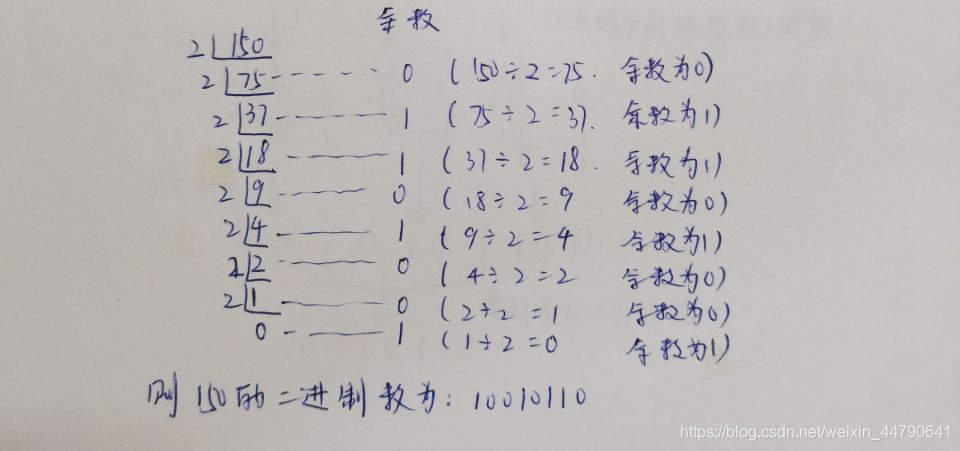 余数
2 150
2 75 0 (150÷2=75. 余数为0)
2 37 1 (75÷2=37. 余数为1)
2 18 1 (37÷2=18. 余数为1)
2 9 0 (18÷2=9 余数为0)
2 4 1 (9÷2=4 余数为1)
2 2 0 (4÷2=2 余数为0)
2 1 0 (2÷2=1 余数为0)
0 1 (1÷2=0 余数为1)
则150的二进制数为: 10010110
https://blog.csdn.net/weixin_44790641